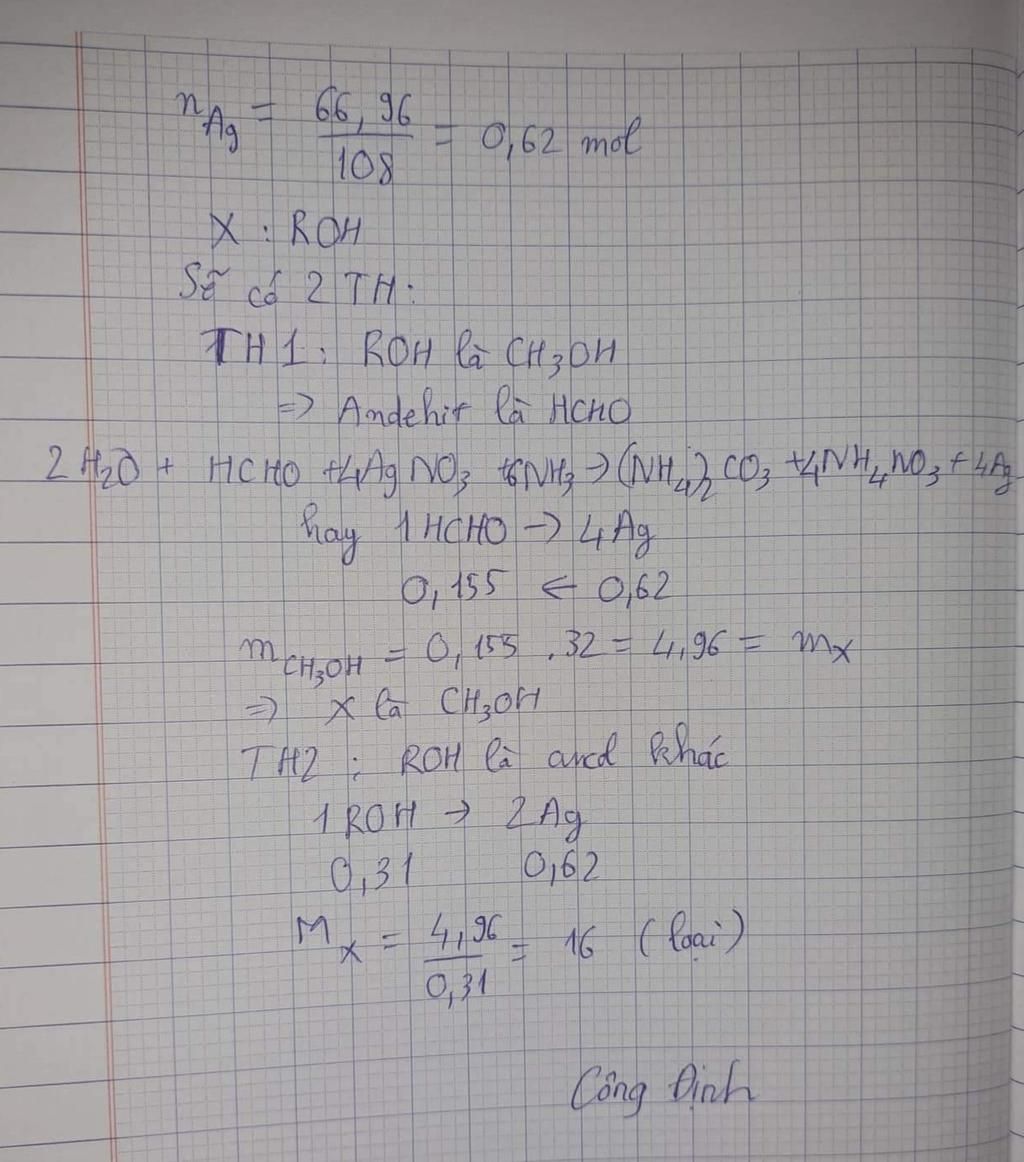 n_Ag = 66,96 / 108 = 0,62 mol
X : ROH
Sẽ có 2 TH:
TH1: ROH là CH₃OH
=> Andehit là HCHO
2H₂O + HCHO + 4AgNO₃ + 6NH₃ → (NH₄)₂CO₃ + 4NH₄NO₃ + 4Ag
hay 1HCHO → 4Ag
0,155 ← 0,62
m_CH₃OH = 0,155 . 32 = 4,96 = m_X
=> X là CH₃OH
TH2 : ROH là ancol khác
1ROH → 2Ag
0,31 0,62
M_X = 4,96 / 0,31 = 16 (loại)
Công Định